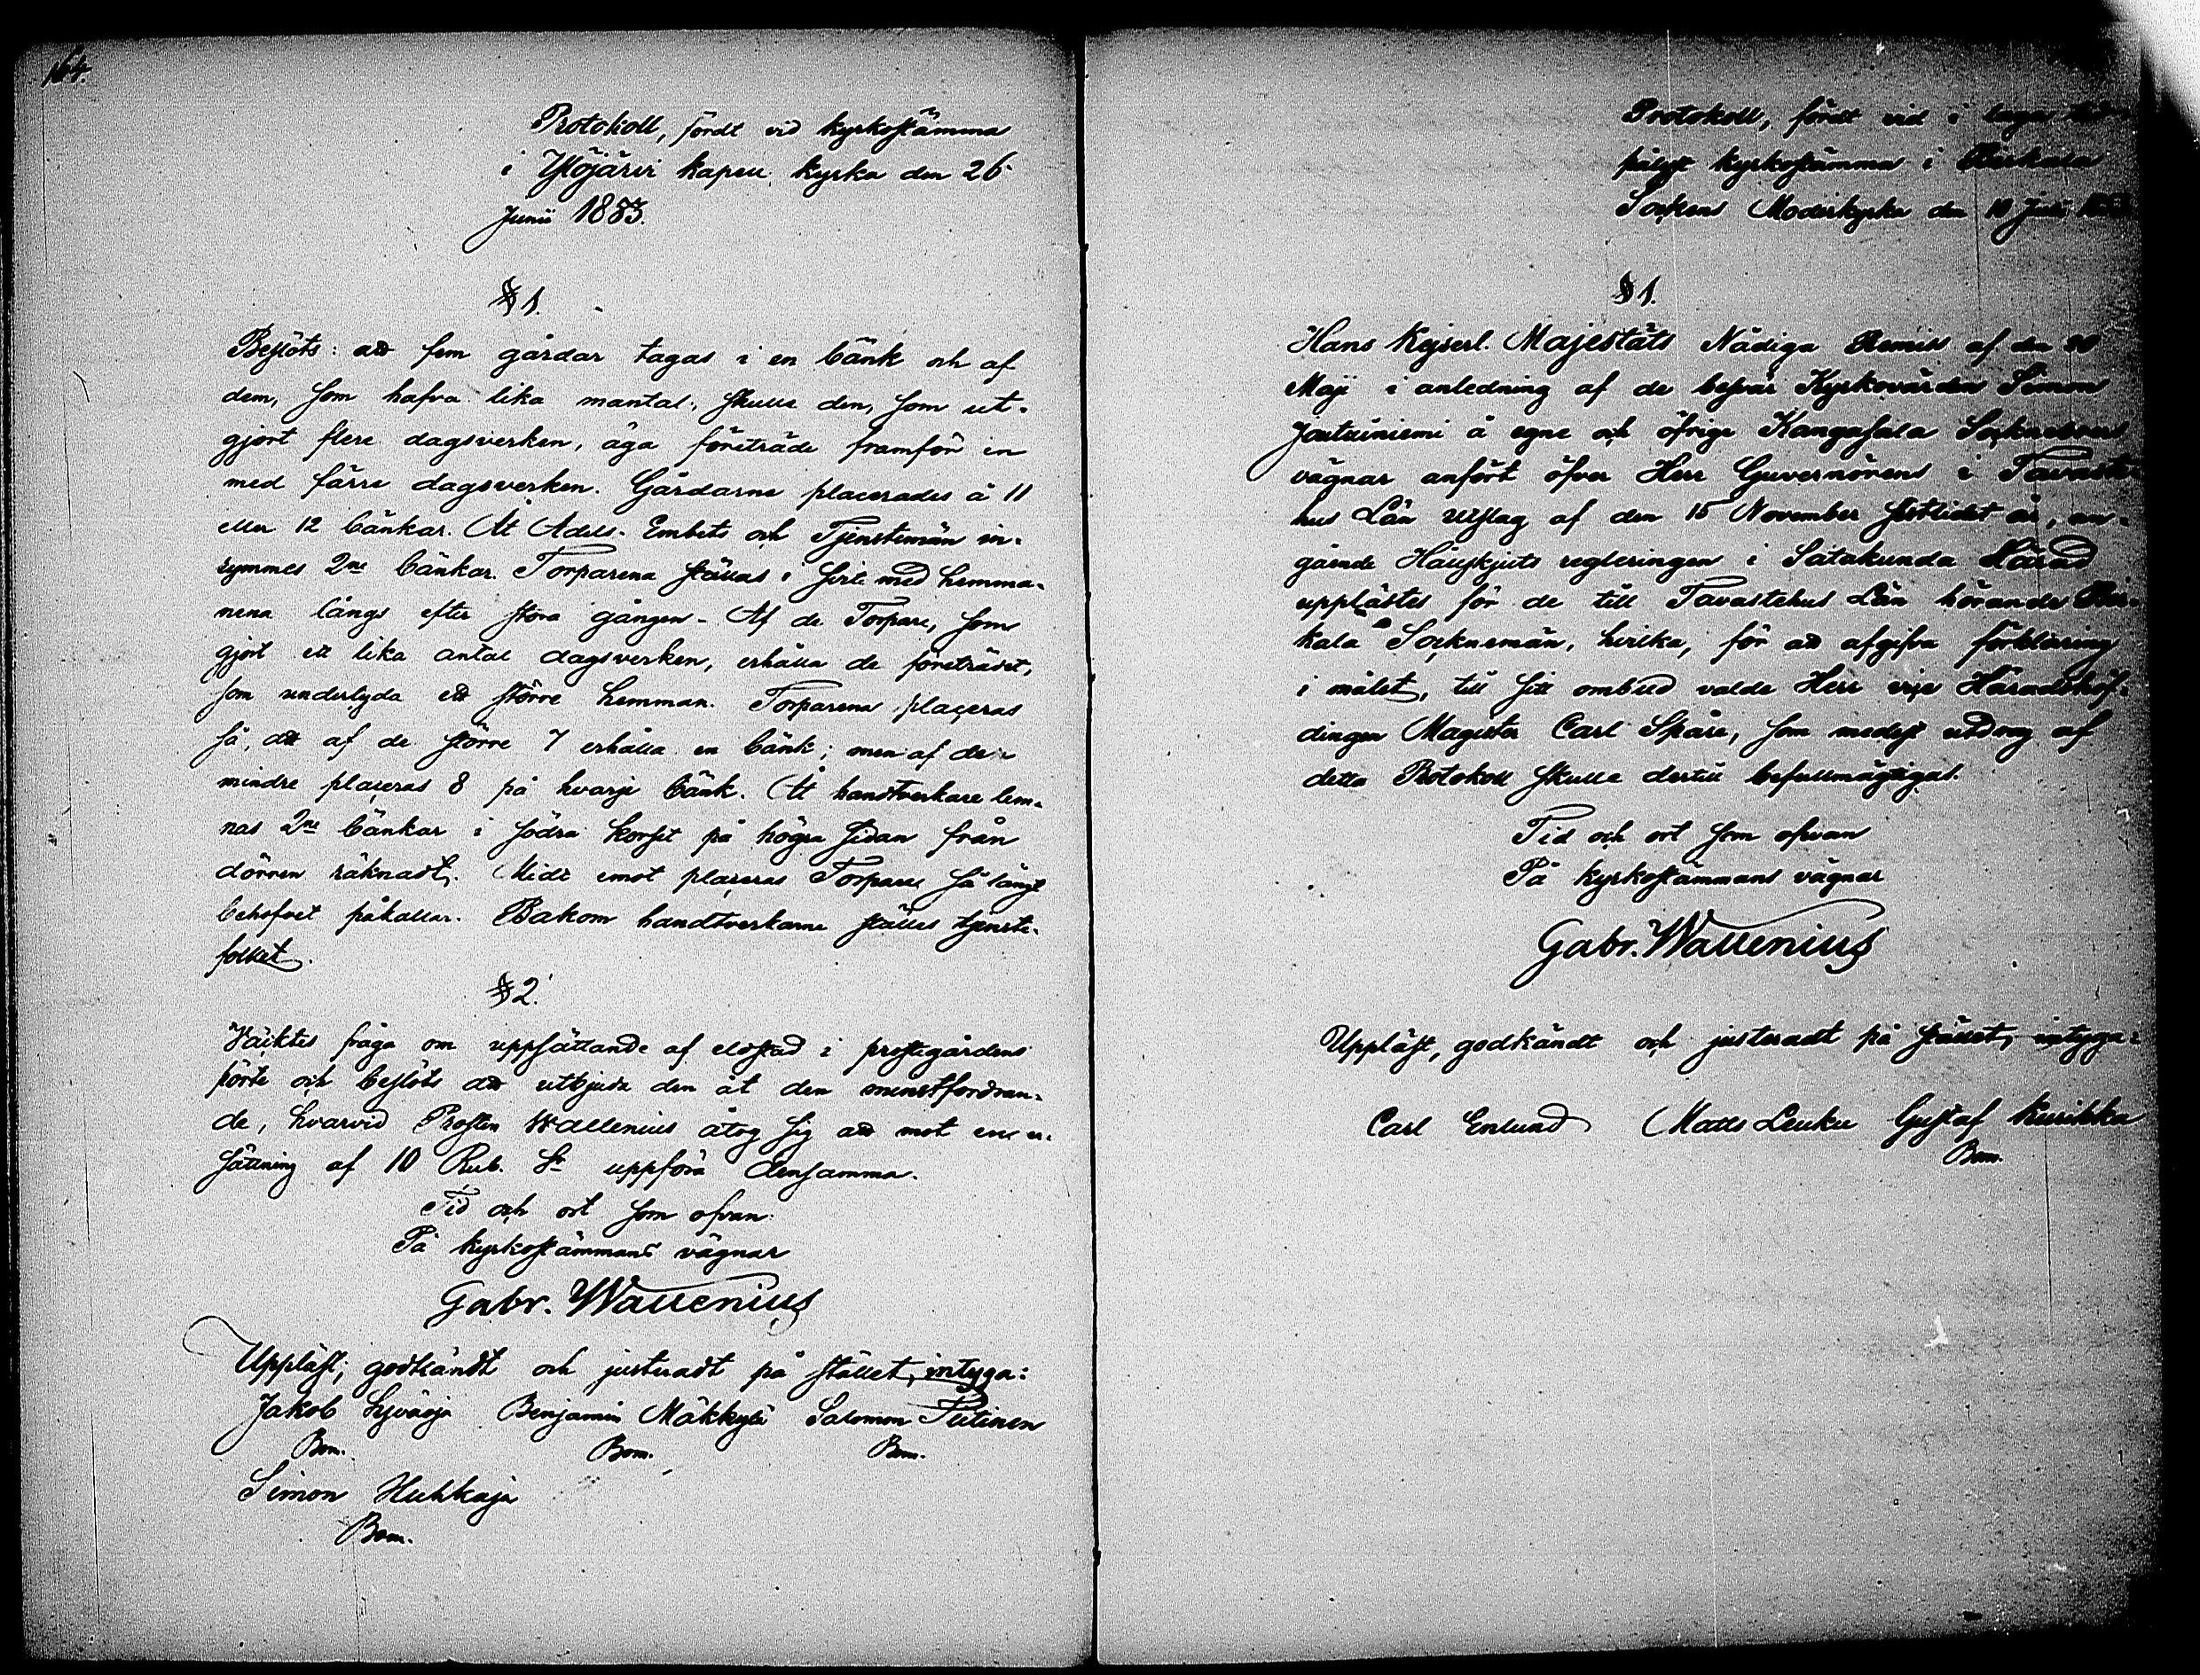 164.
Protokoll, fördt vid kyrkostämma
i Ylöjärvi kapell kyrka den 26
Junii 1853.
§ 1.
Beslöts: att fem gårdar tagas i en bänk och af
dem, som hafva lika mantal, skulle den, som ut-
gjort flere dagsverken, äga företräde framför en
med färre dagsverken. Gårdarne placerades å 11
eller 12 bänkar. Åt Adels- Embets och Tjenstemän in-
rymmes 2ne bänkar. Torparena ställas i ... med hemma-
nena längs efter stora gången. Af de Torpare, som
gjort ett lika antal dagsverken, erhålla de företrädet,
som underlyda ett större hemman. Torparena placeras
så, att af de större 7 erhålla en bänk; men af de
mindre placeras 8 på hvarje bänk. Åt handtverkare lem-
nas 2ne bänkar i södra korset på högra sidan från
dörren räknadt. Midt emot placeras Torpare så långt
behofvet påkallar. Bakom handtverkarne ställes tjenste-
folket.
§ 2.
Väcktes fråga om uppsättande af eldstad i prestegårdens
pörte och beslöts att utbjuda den åt den minstfordran-
de, hvarvid Prosten Wallenius åtog sig att mot en er-
sättning af 10 Rub. Sr uppföra densamma.
Tid och ort som ofvan
På kyrkostämmans vägnar
Gabr. Wallenius
Uppläst, godkändt och justeradt på stället, intyga:
Jakob Benjamin Mäkkylä Salomon
Bom. Bom. Bom.
Simon Huhkaja
Bom.
Protokoll, fördt vid i laga
pålyst kyrkostämma i Birkala
Sockens Moderkyrka den 10 Juli 1853
§ 1.
Hans Kejserl. Majestäts Nådiga Remiss af den 20
Maji i anledning af de besvär Kyrkovärden Simon
å egne och öfrige Kangasala Sockneboers
vägnar anfört öfver Herr Guvernörens i Tavaste-
hus Län utslag af den 15 November sistlidet år, an-
gående Hållskjuts regleringen i Satakunda Härad
upplästes för de till Tavastehus Län hörande Bir-
kala Socknemän, hvilka, för att afgifva förklaring
i målet, till sitt ombud valde Herr vice Häradshöf-
dingen Magister Carl Spåre, som medelst utdrag af
detta Protokoll skulle dertill befullmägtigas.
Tid och ort som ofvan
På kyrkostämmans vägnar
Gabr. Wallenius
Uppläst, godkändt och justeradt på stället, intyga:
Carl Enlund Matts Leuku Gustaf Kurikka
Bom.